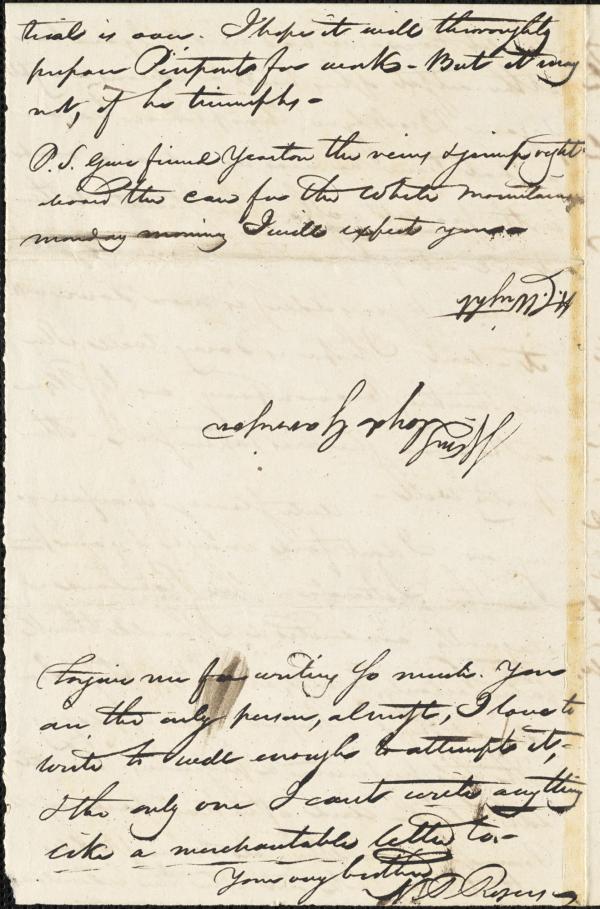 trial is over. I hope it will thoroughly
prepare Pierpont for work - But it may
not, if he triumphs -
P.S. Give friend Yearton the reins & jump right
board the cars for the White Mountains
monday morning I will expect you -
H. C. Wright
Wm Lloyd Garrison
Forgive me for writing so much. You
are the only person, almost, I love to
write to well enough to attempt it, -
& the only one I can't write anything
like a merchantable letter to. -
Your own brother
N. P. Rogers